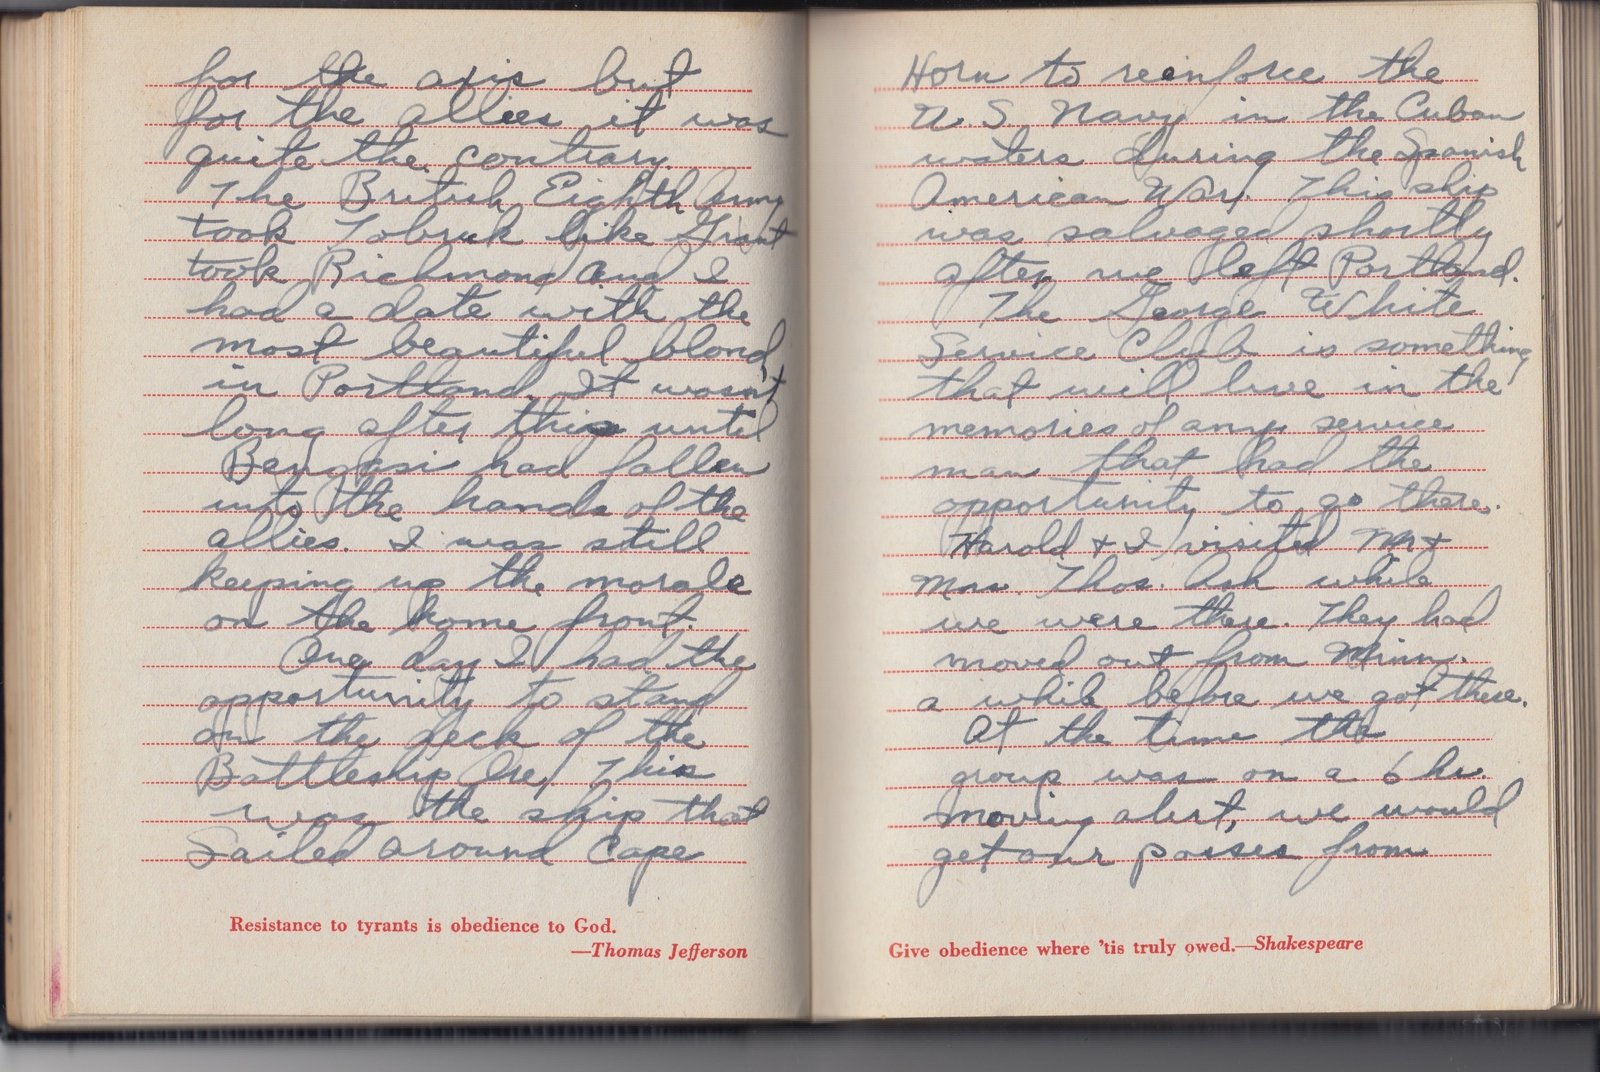 for the axis but
for the allies it was
quite the contrary.
The British Eighth Army
took Tobruk like Grant
took Richmond and I
had a date with the
most beautiful blond
in Portland. It wasn't
long after this until
Bengasi had fallen
into the hands of the
allies. I was still
keeping up the morale
on the home front.
One day I had the
opportunity to stand
on the deck of the
Battleship Ore, This
was the ship that
Sailed around Cape
Resistance to tyrants is obedience to God.
—Thomas Jefferson
Horn to reenforce the
U.S. Navy in the Cuban
waters during the Spanish
American War. This ship
was salvaged shortly
after we left Portland.
The George White
Service Club is something
that will live in the
memories of any service
man that had the
opportunity to go there.
Harold + I visited Mr +
Mrs. Thos. Ask while
we were there. They had
moved out from Minn.
a while before we got there.
At the time the
group was on a 6 hr.
moving alert, we would
get our passes from
Give obedience where 'tis truly owed.—Shakespeare